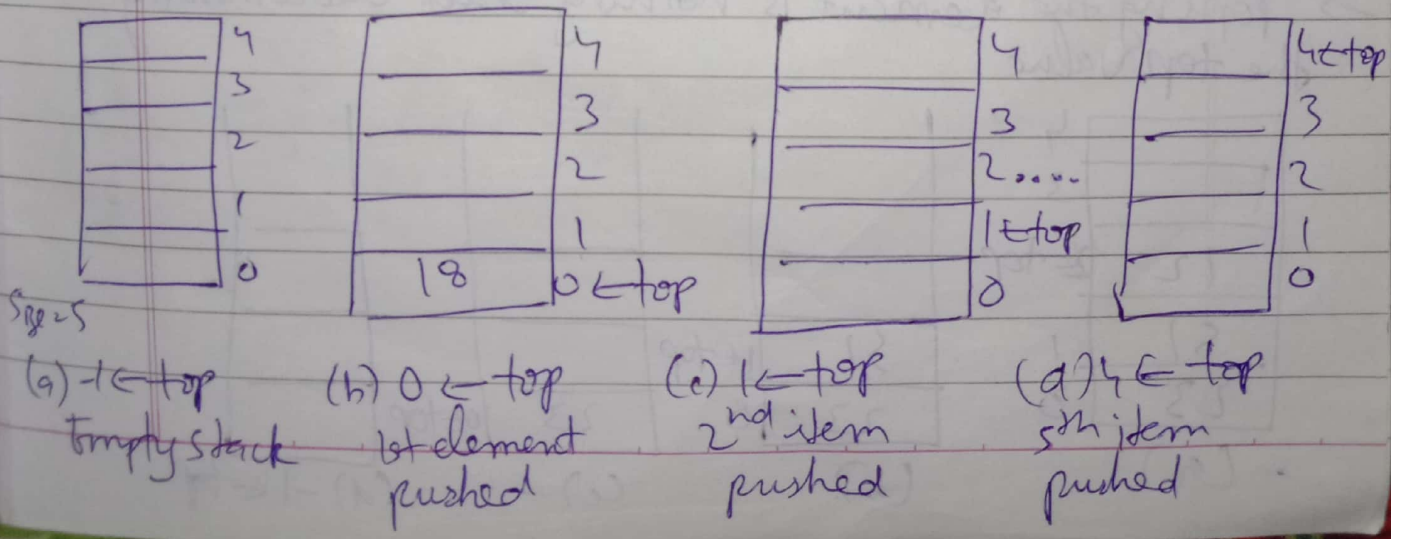 4
3
2
1
0
Size=5
(a) -1 ← top
Empty stack
4
3
2
1
18
0 ← top
(b) 0 ← top
1st element
pushed
4
3
2.....
1 ← top
0
(c) 1 ← top
2nd item
pushed
4 ← top
3
2
1
0
(d) 4 ← top
5th item
pushed